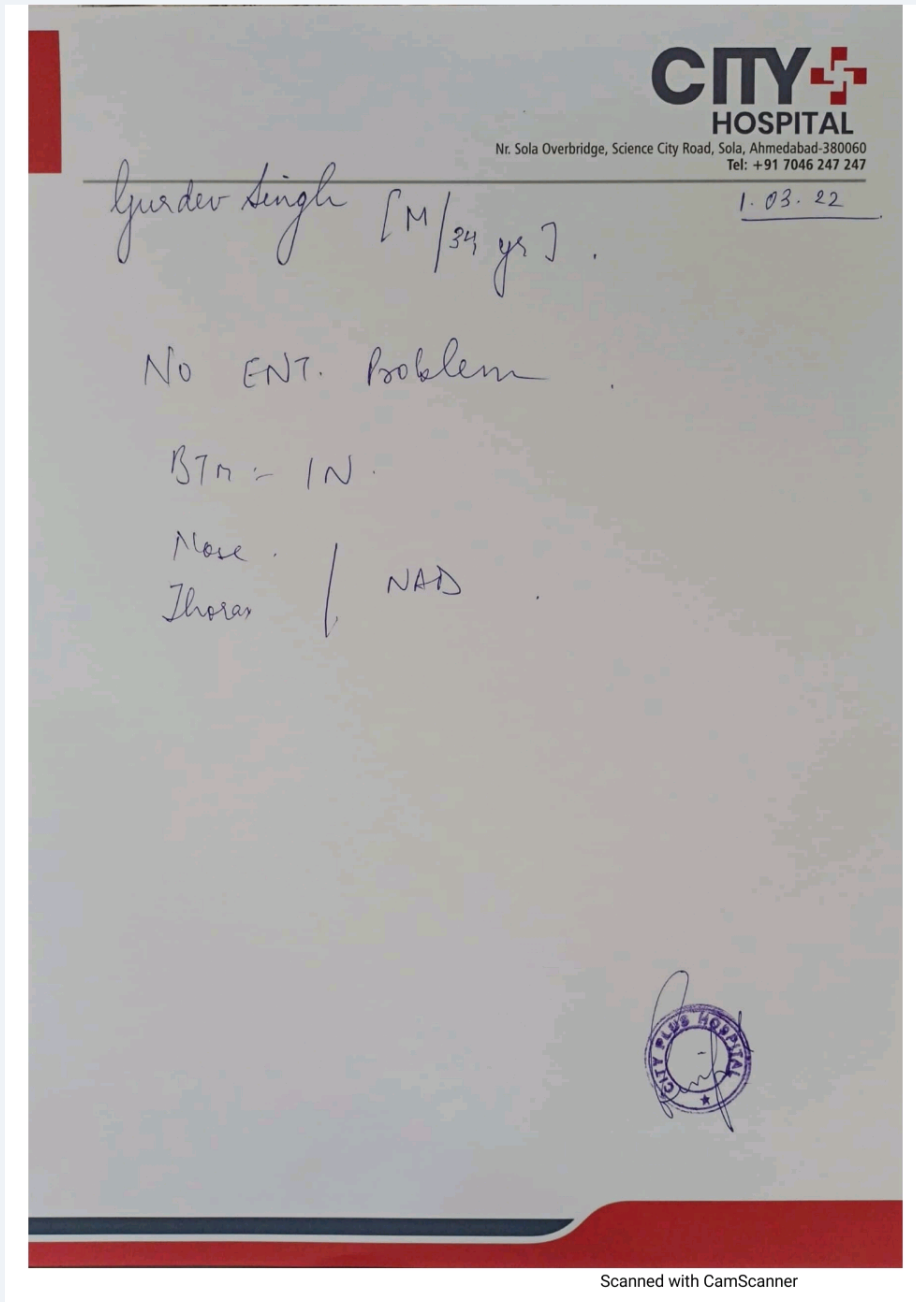 CITY
HOSPITAL
Nr. Sola Overbridge, Science City Road, Sola, Ahmedabad-380060
Tel: +91 7046 247 247
1.03.22
Gurdev Singh [M/34 yr].
No ENT. Problem.
BTM :- IN.
Nose.
Thorax / NAD.
CITY PLUS HOSPITAL
Scanned with CamScanner